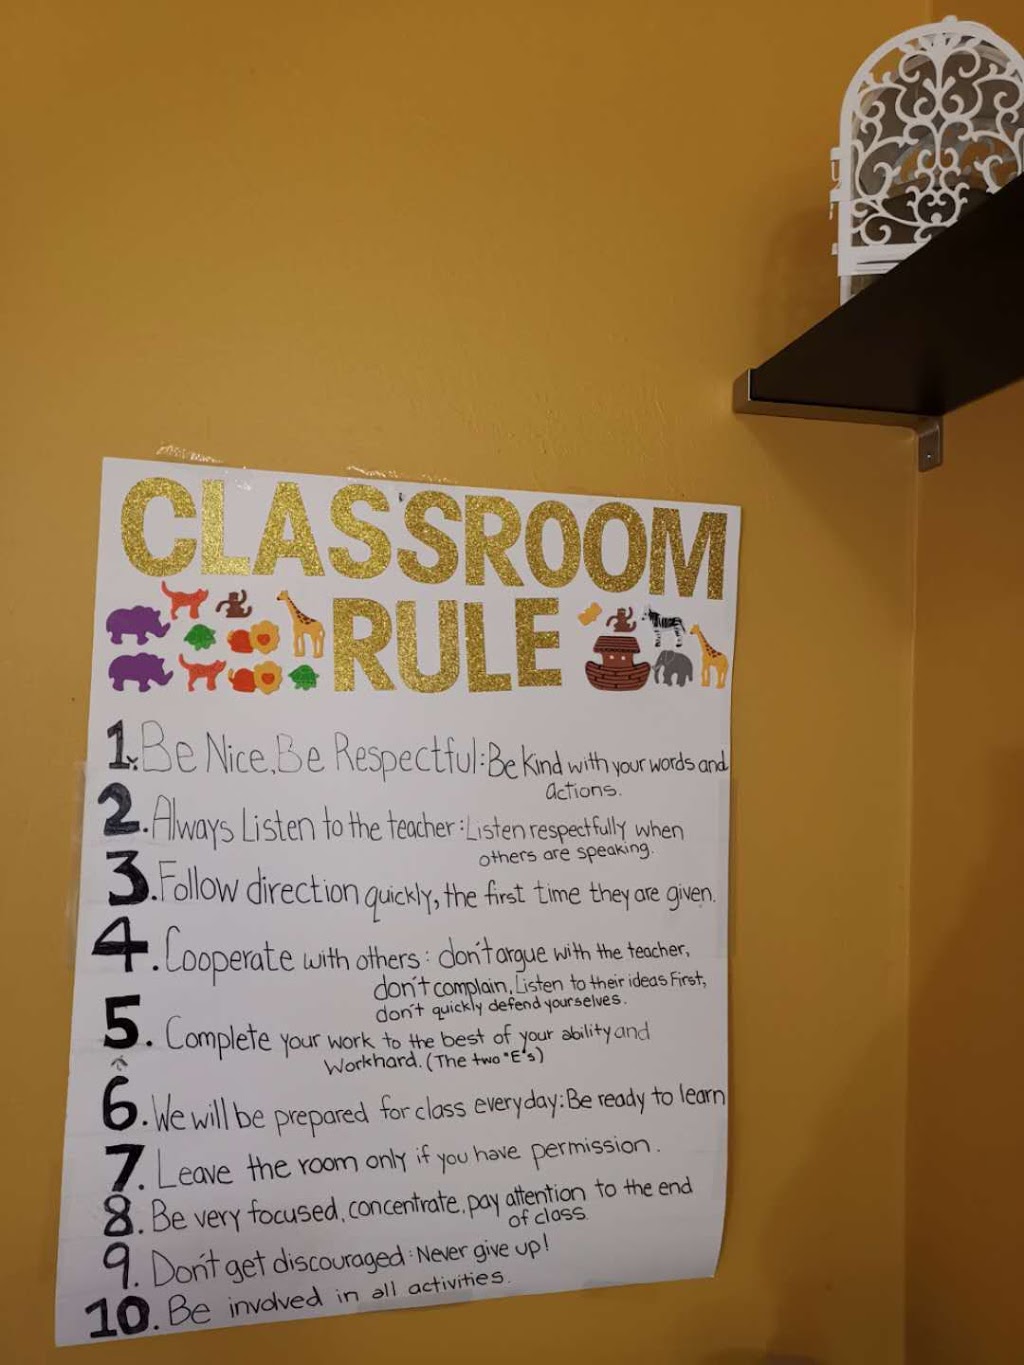 CLASSROOM
RULE
1. Be Nice, Be Respectful: Be kind with your words and
actions.
2. Always Listen to the teacher: Listen respectfully when
others are speaking.
3. Follow direction quickly, the first time they are given.
4. Cooperate with others: don't argue with the teacher,
don't complain, Listen to their ideas First,
don't quickly defend yourselves.
5. Complete your work to the best of your ability and
Workhard. (The two "E"s)
6. We will be prepared for class everyday: Be ready to learn
7. Leave the room only if you have permission.
8. Be very focused, concentrate, pay attention to the end
of class.
9. Don't get discouraged: Never give up!
10. Be involved in all activities.